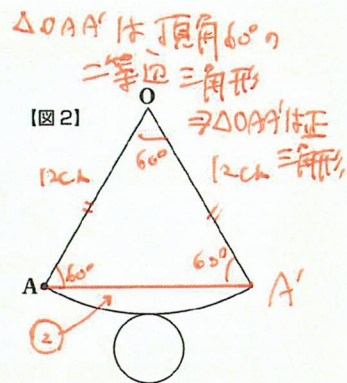 △OAA'は頂角60°の
二等辺三角形
⇒△OAA'は正
三角形
【図2】
O
60°
12cm
12cm
60°
60°
A
A'
②